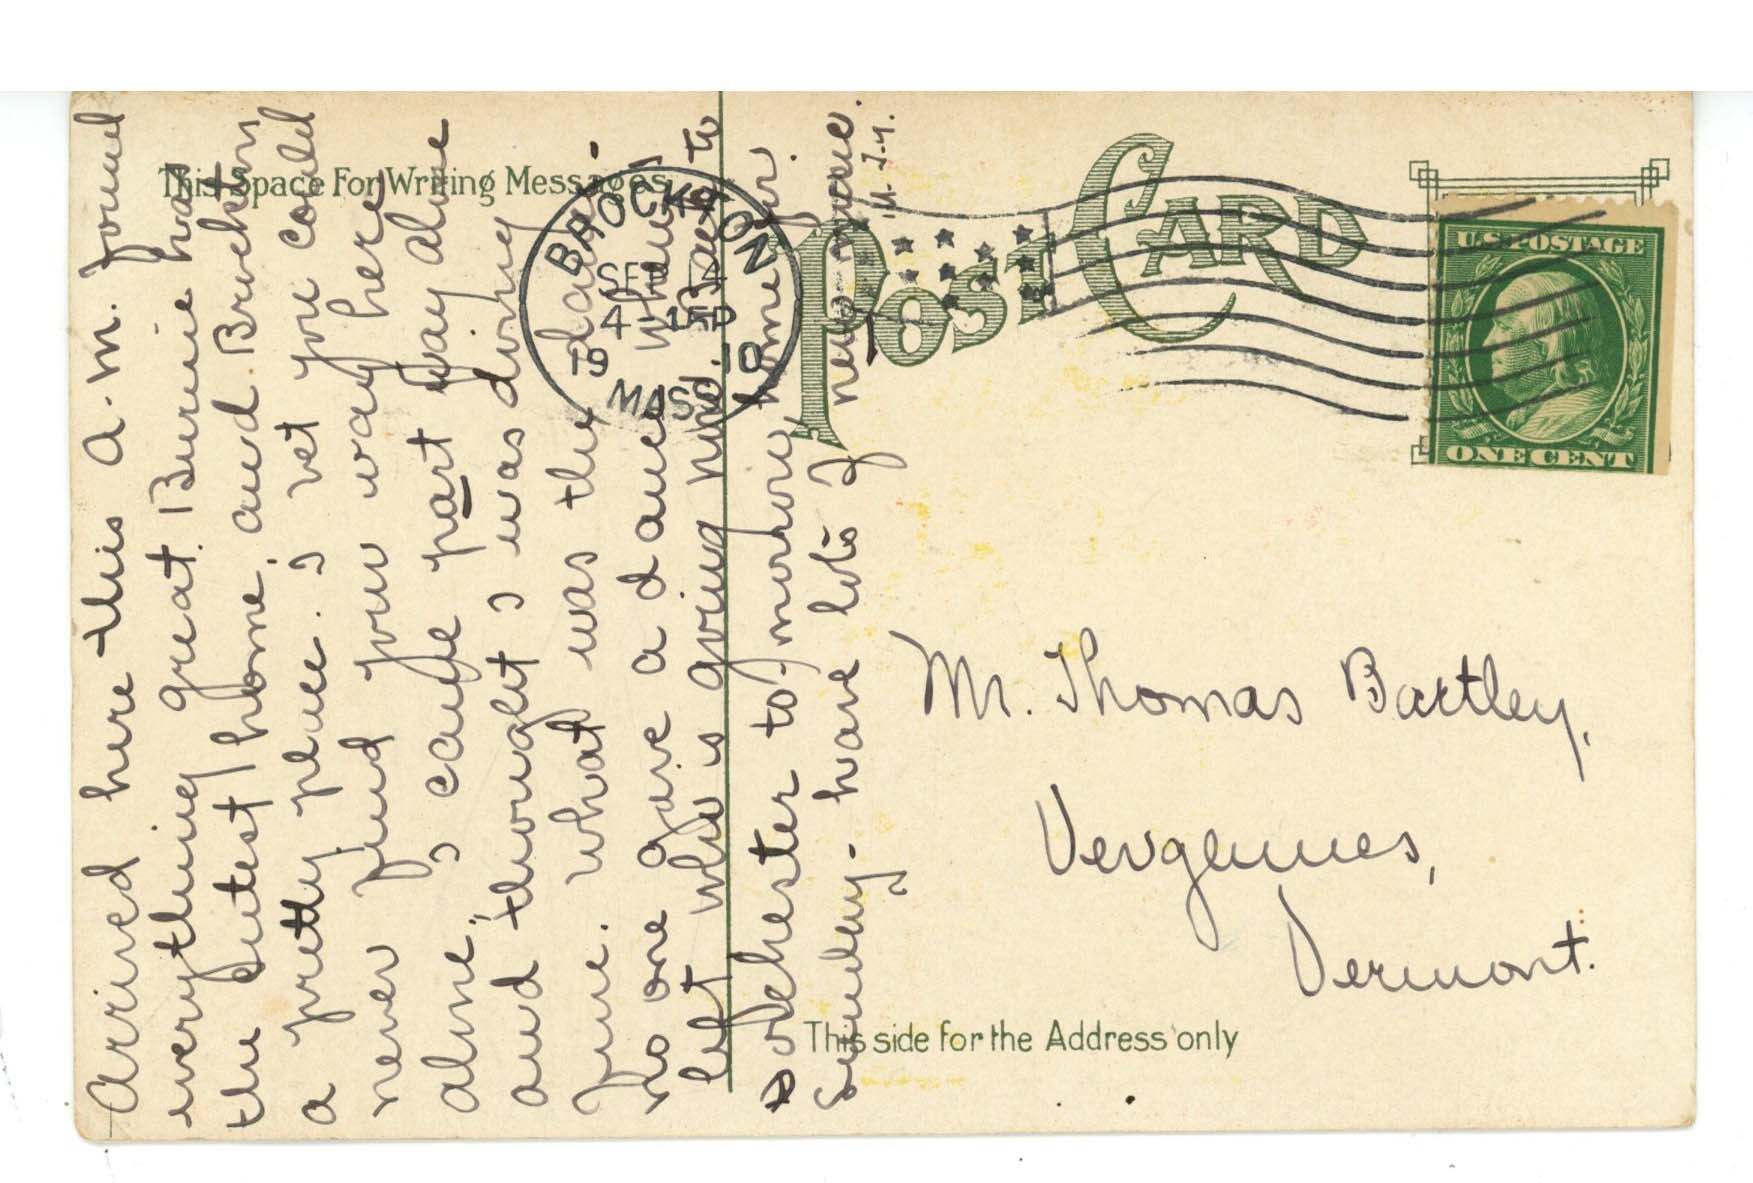 This Space For Writing Messages
Arrived here this a.m. found
everything great. Bernie has
the cutest home, and Brockton
a pretty place. I bet you could
never find your way here
alone, I came part way alone
and thought I was doing
fine. What was the dance.
no one gave a dance when I
left who is going hunt. Back to
Rochester to-morrow, home for
Sunday - have lots of news
BROCKTON
SEP 14
4-15P
1910
MASS.
POST CARD
U.S. POSTAGE
ONE CENT
Mr. Thomas Bartley,
Vergennes,
Vermont.
This side for the Address only